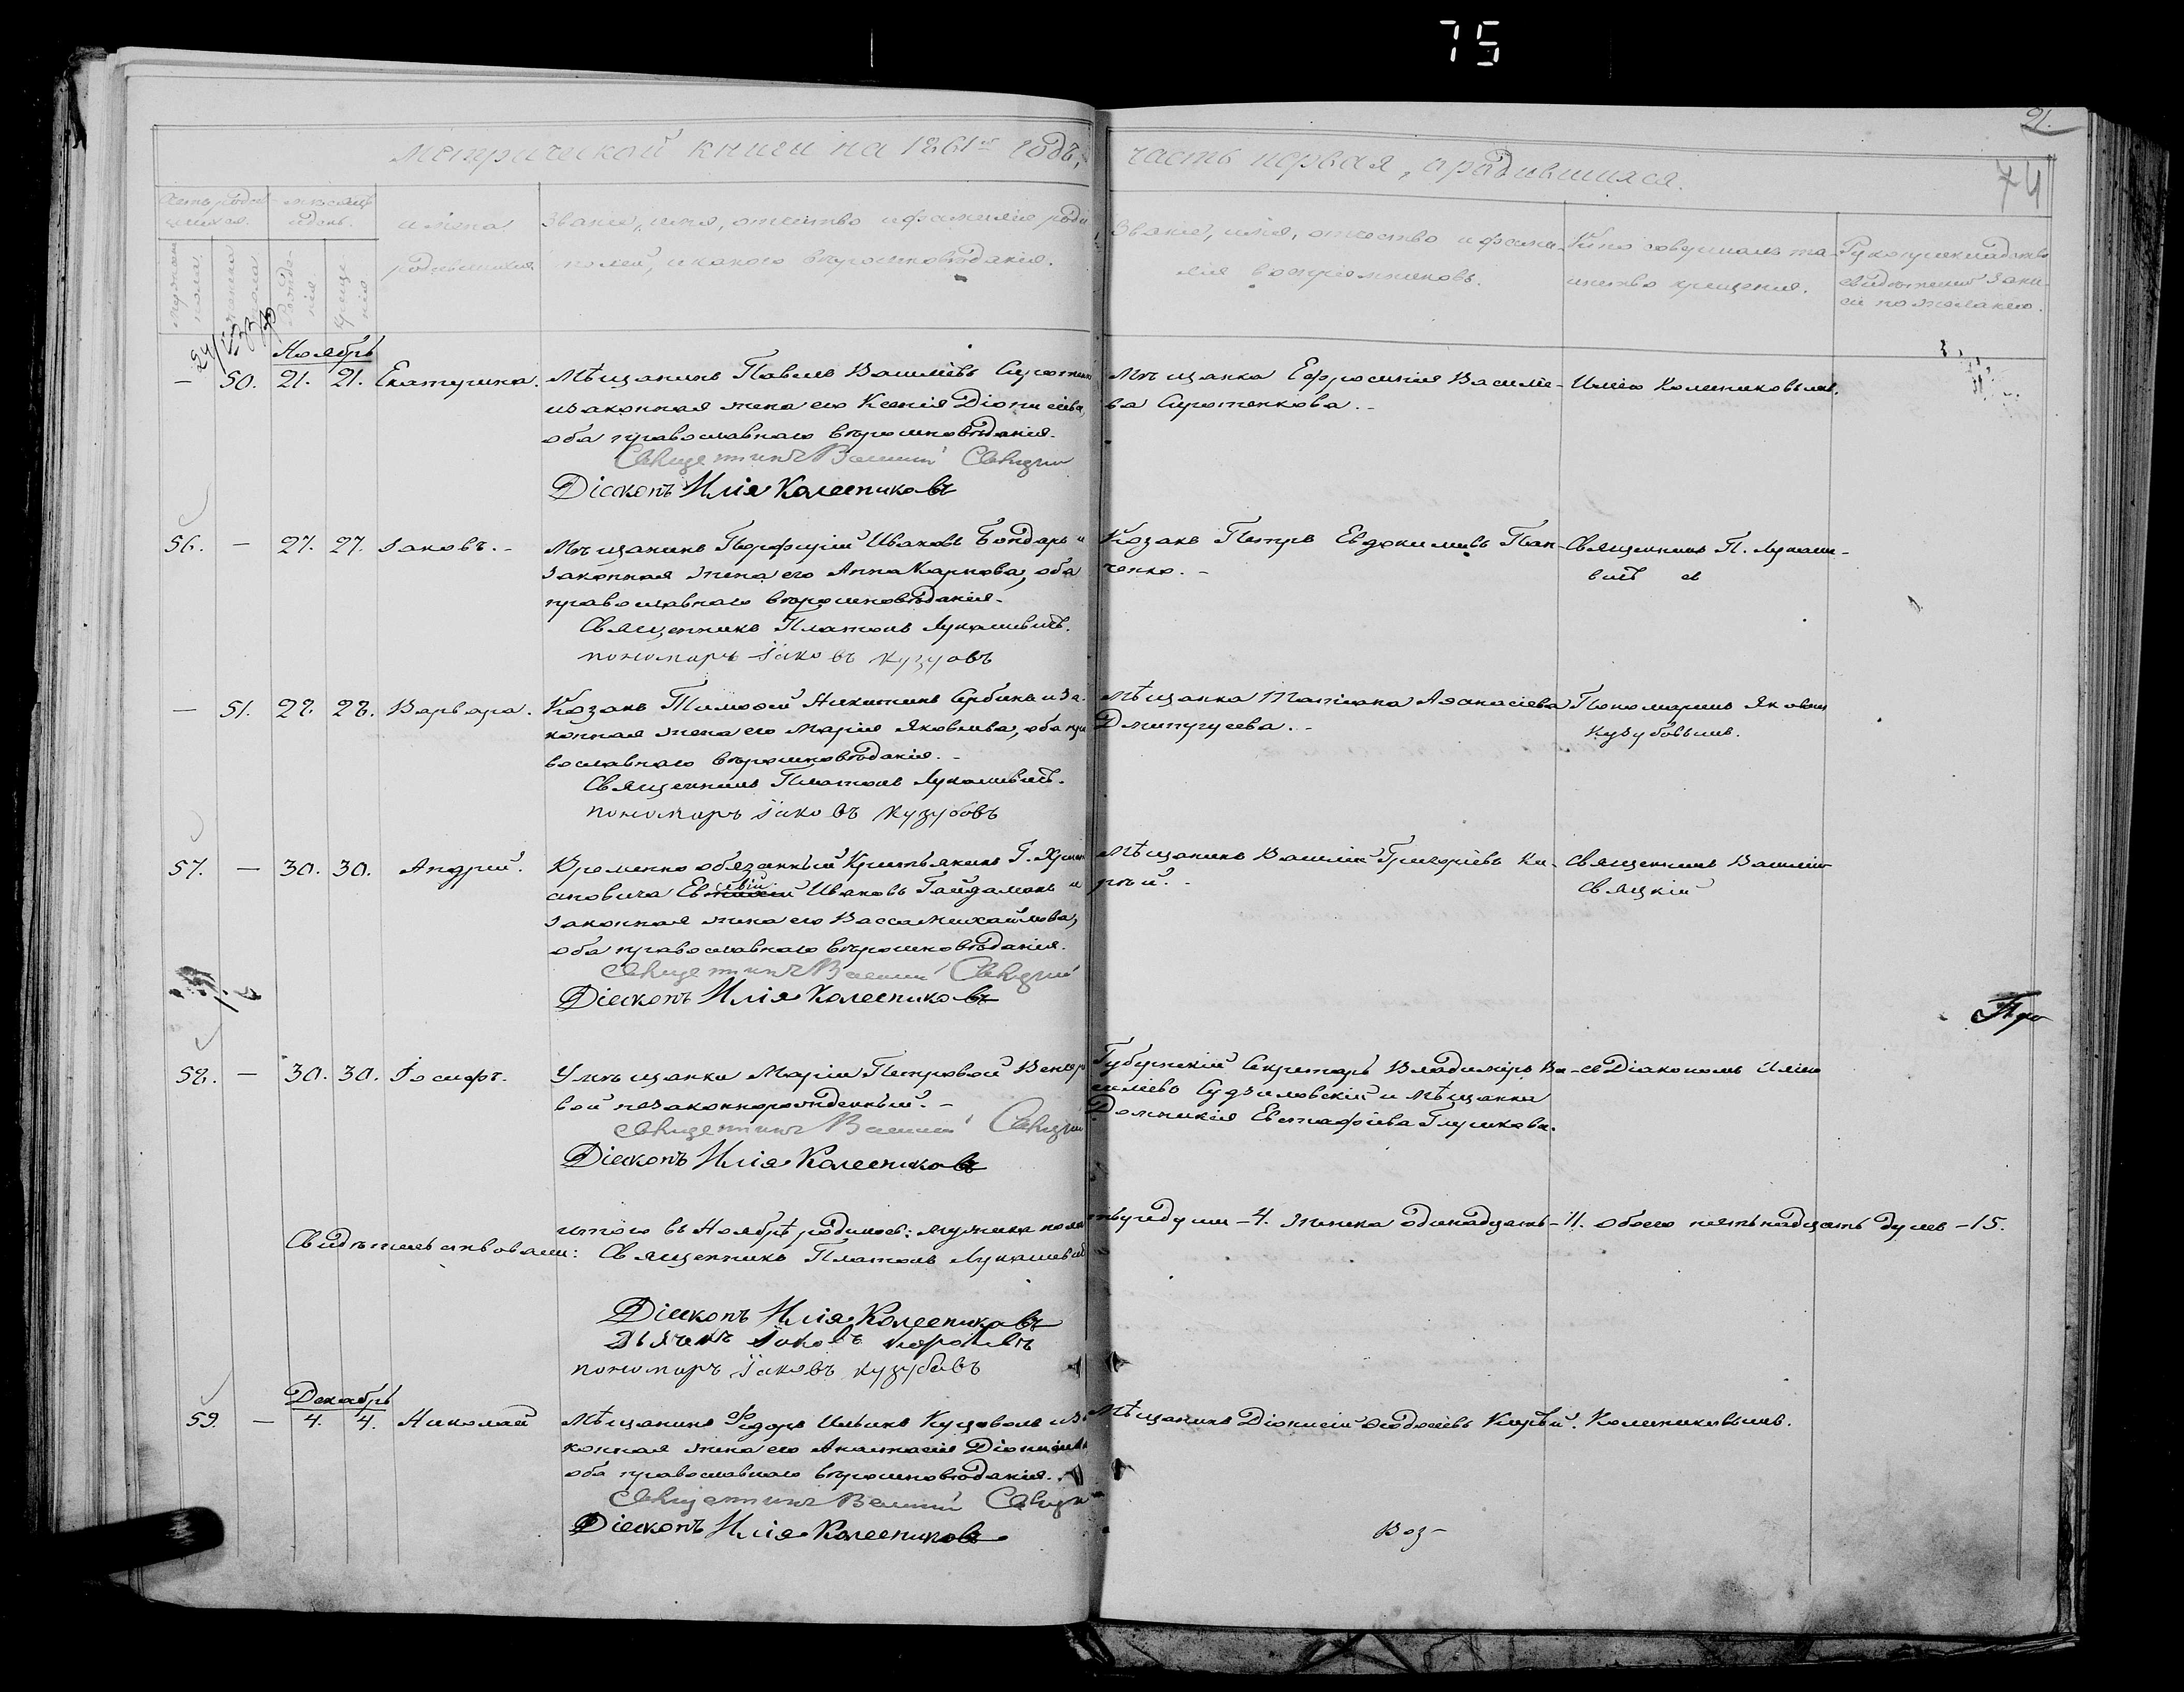 75
21.
74
Метрической книги на 1861й годъ, часть первая, о родившихся.
Счетъ родившихся.
мужеска пола.
женска пола
мѣсяцъ и день.
рожденія.
крещенія
имена родившихся.
Званіе, имя, отчество и фамилія родителей, и какого вѣроисповѣданія.
Званіе, имя, отчество и фамилія воспріемниковъ.
Кто совершалъ таинство крещенія.
Рукоприкладство свидѣтелей записи по желанію.
Ноябрь
— 50. 21. 21. Екатерина.
Мѣщанинъ Павелъ Васильевъ
и законная жена его Ксенія Діонисіева,
оба православнаго вѣроисповѣданія.
Священникъ Василій Свяцкій
Діаконъ Илія Колесниковъ
Мѣщанка Ефросинія Василье-
ва Сиротенкова. -
Иліею Колесниковымъ.
56. — 27. 27. Іаковъ. -
Мѣщанинъ Порфирій Ивановъ Бондарь и
законная жена его Анна Карпова, оба
православнаго вѣроисповѣданія.
Священникъ Платонъ Лукашевичъ.
пономарь Іаковъ Кузубовъ
Козакъ Петръ Евдокимовъ Пан-
ченко. -
Священникъ П. Лукаше-
вичъ
— 51. 28. 28. Варвара.
Козакъ Тимофей Никитинъ Сербинъ и за-
конная жена его Марія Яковлева, оба пра
вославнаго вѣроисповѣданія. -
Священникъ Платонъ Лукашевичъ.
пономарь Іаковъ Кузубовъ
Мѣщанка Татіана Аѳанасіева
Пономаремъ Яковомъ
Кузубовымъ.
57. — 30. 30. Андрей.
Временно обязанный Крестьянинъ Г.
Ивановъ Гайдамакъ и
законная жена его Васса Михайлова,
оба православнаго вѣроисповѣданія.
Священникъ Василій Свяцкій
Діаконъ Илія Колесниковъ
Мѣщанинъ Василій Григоріевъ Ки-
рѣй. -
Священникъ Василій
Свяцкій
Про
58. — 30. 30. Іосифъ.
У мѣщанки Маріи Петровой
вой незаконнорожденный. -
Священникъ Василій Свяцкій
Діаконъ Илія Колесниковъ
Губернскій Секретарь Владиміръ Ва-
силіевъ Судзиловскій и Мѣщанка
Домникія Евстафіева Глушкова.
Діакономъ Иліею
итого въ Ноябрѣ родилось: мужеска пола четыре души — 4. женска одинадцать — 11. обоего пятьнадцать душъ — 15.
Свидѣтельствовали: Священникъ Платонъ Лукашевичъ
Діаконъ Илія Колесниковъ
Дьячекъ Іаковъ
пономарь Іаковъ Кузубовъ
Декабрь
59. — 4. 4. Николай
Мѣщанинъ Ѳедоръ Ильинъ Куцоволъ и за
конная жена его Анастасія Діонисіева
оба православнаго вѣроисповѣданія.
Священникъ Василій Свяцкій
Діаконъ Илія Колесниковъ
Мѣщанинъ Діонисій Ѳеодосіевъ Кирѣй.
Колесниковымъ.
Воз-